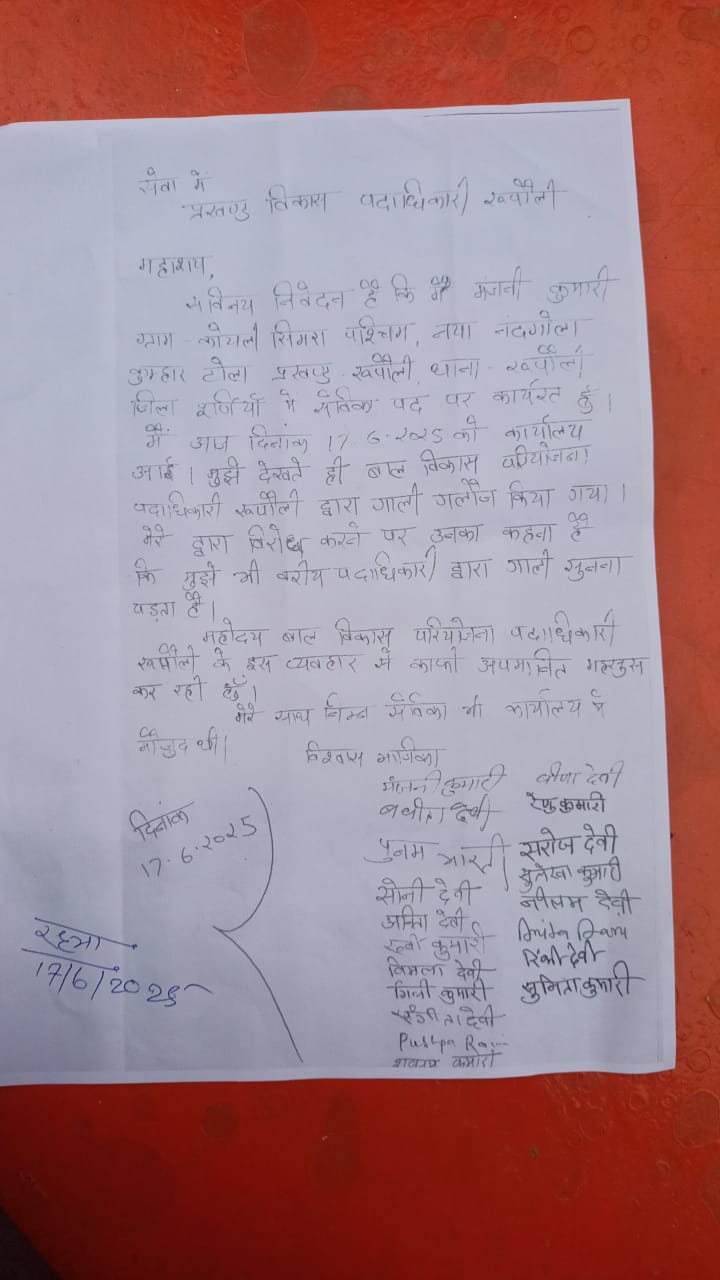 सेवा में
प्रखण्ड विकास पदाधिकारी रूपौली
महाशय,
सविनय निवेदन है कि मैं मंजनी कुमारी
ग्राम - कोयली सिमरा पश्चिम, नया नंदगोला
कुम्हार टोला प्रखण्ड - रूपौली, थाना - रूपौली
जिला पूर्णियाँ में सेविका पद पर कार्यरत हुँ।
मैं आज दिनांक 17.6.2025 को कार्यालय
आई। मुझे देखते ही बाल विकास परियोजना
पदाधिकारी रूपौली द्वारा गाली गलौज किया गया।
मेरे द्वारा विरोध करने पर उनका कहना है
कि मुझे भी वरीय पदाधिकारी द्वारा गाली सुनना
पड़ता है।
महोदय बाल विकास परियोजना पदाधिकारी
रूपौली के इस व्यवहार से काफी अपमानित महसुस
कर रही हुँ।
मेरे साथ निम्न सेविका भी कार्यालय में
मौजुद थी।
विश्वास भाजिका
मंजनी कुमारी वीणा देवी
बबीता देवी रेणु कुमारी
पुनम भारती सरोज देवी
सुलेखा कुमारी
सोनी देवी नीलम देवी
अनिता देवी
रूबी कुमारी रिंकी देवी
विमला देवी
कुमारी सुनिता कुमारी
संगीता देवी
Pushpa Rani
कुमारी
दिनांक
17.6.2025
17/6/2025